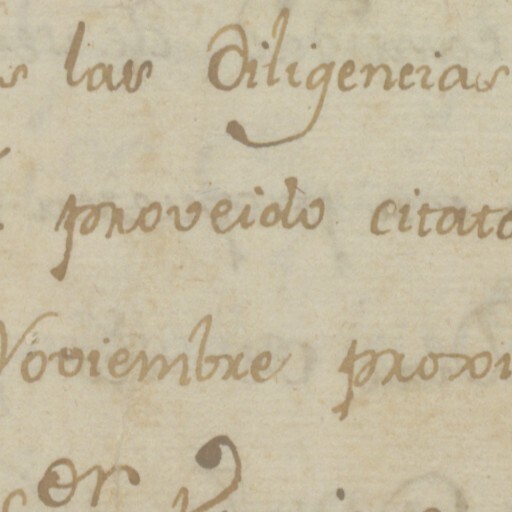 las Diligencias
proveido citato
Noviembre proxi
or